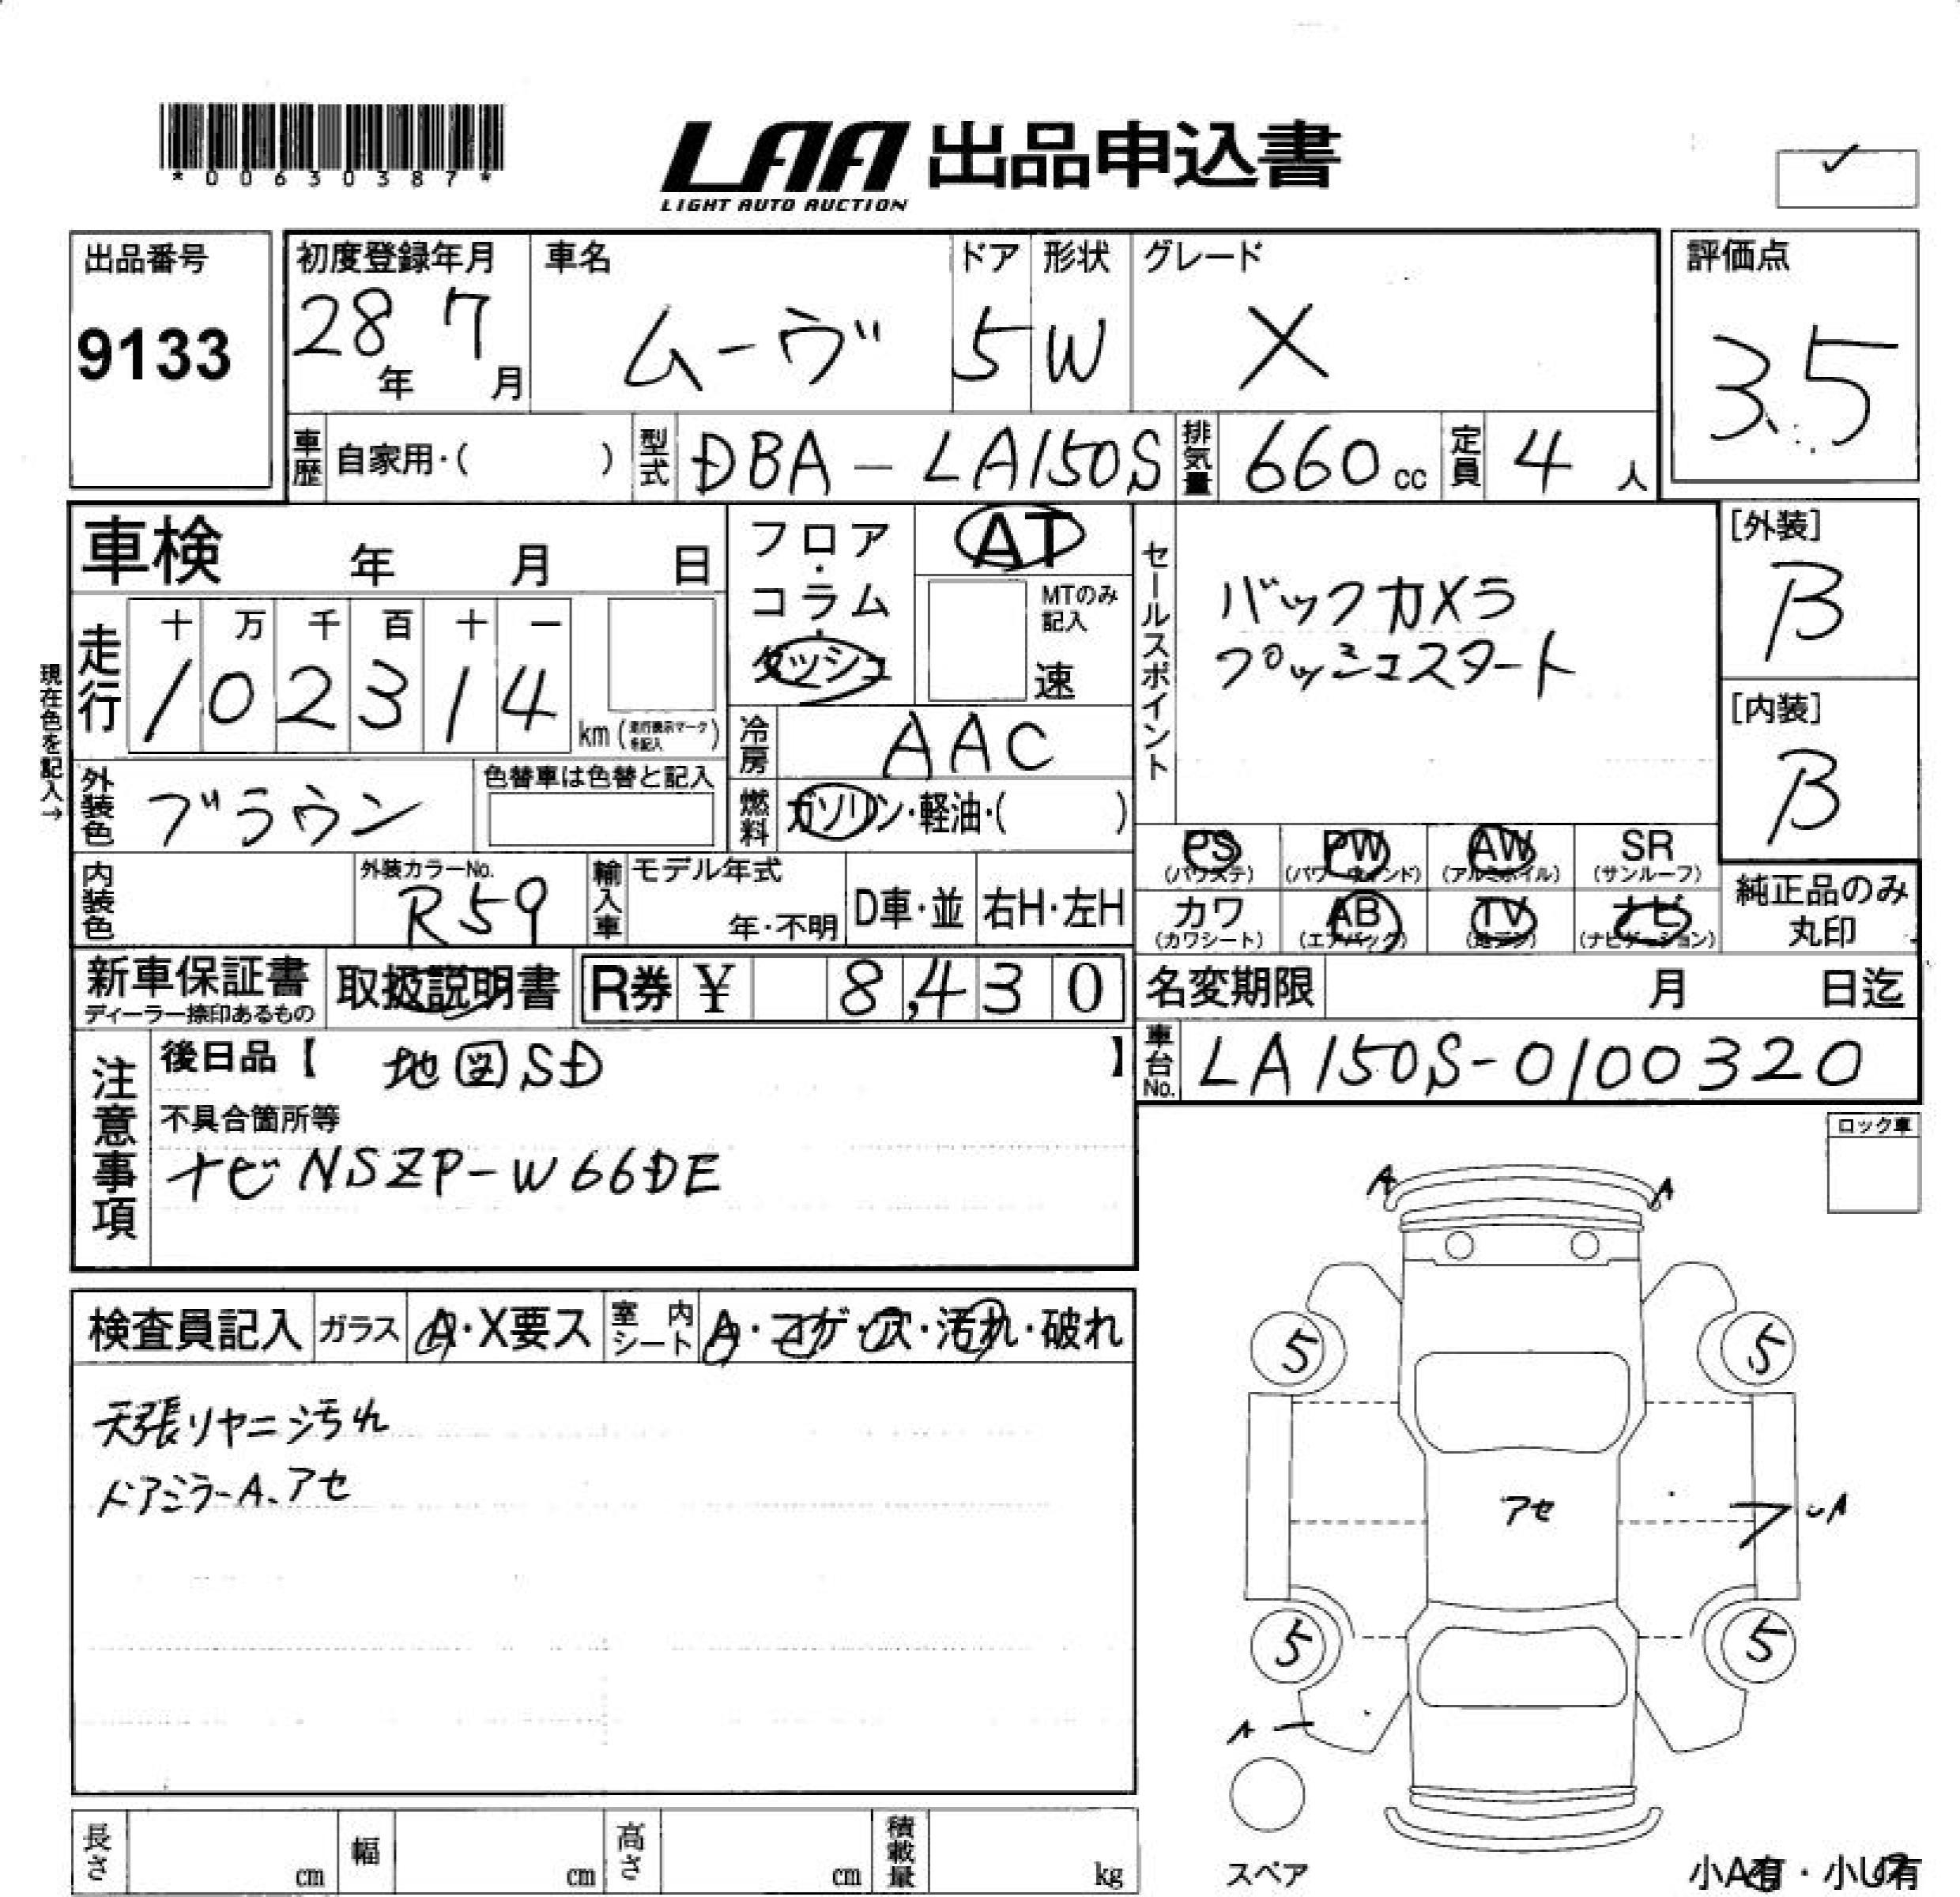 *00630387*
LAA 出品申込書
LIGHT AUTO AUCTION
✓
出品番号
9133
初度登録年月
28年 7月
車名
ムーヴ
ドア
5
形状
W
グレード
X
評価点
3.5
車歴 自家用・( )
型式 DBA-LA150S
排気量 660cc
定員 4人
車検 年 月 日
現在色を記入→
走行
十 万 千 百 十 一
1 0 2 3 1 4 km (走行表示マークを記入)
外装色 ブラウン
色替車は色替と記入
フロア・コラム・ダッシュ
AT
MTのみ記入
速
冷房 AAC
燃料 ガソリン・軽油・( )
内装色
外装カラーNo.
R59
輸入車
モデル年式
年・不明
D車・並
右H・左H
セールスポイント
バックカメラ
プッシュスタート
[外装]
B
[内装]
B
PS (パワステ)
PW (パワーウィンド)
AW (アルミホイル)
SR (サンルーフ)
カワ (カワシート)
AB (エアバック)
TV (地デジ)
ナビ (ナビゲーション)
純正品のみ
丸印
新車保証書
ディーラー捺印あるもの
取扱説明書
R券 ¥ 8,430
名変期限 月 日迄
車台No. LA150S-0100320
注意事項
後日品【 地図SD 】
不具合箇所等
ナビ NSZP-W66DE
ロック車
検査員記入
ガラス A・X要ス
室内シート A・コゲ・穴・汚れ・破れ
天張りヤニ汚れ
ドアミラーA、アセ
A A
5 5
アセ
A
5 5
A
スペア
小A有・小U有
長さ cm
幅 cm
高さ cm
積載量 kg